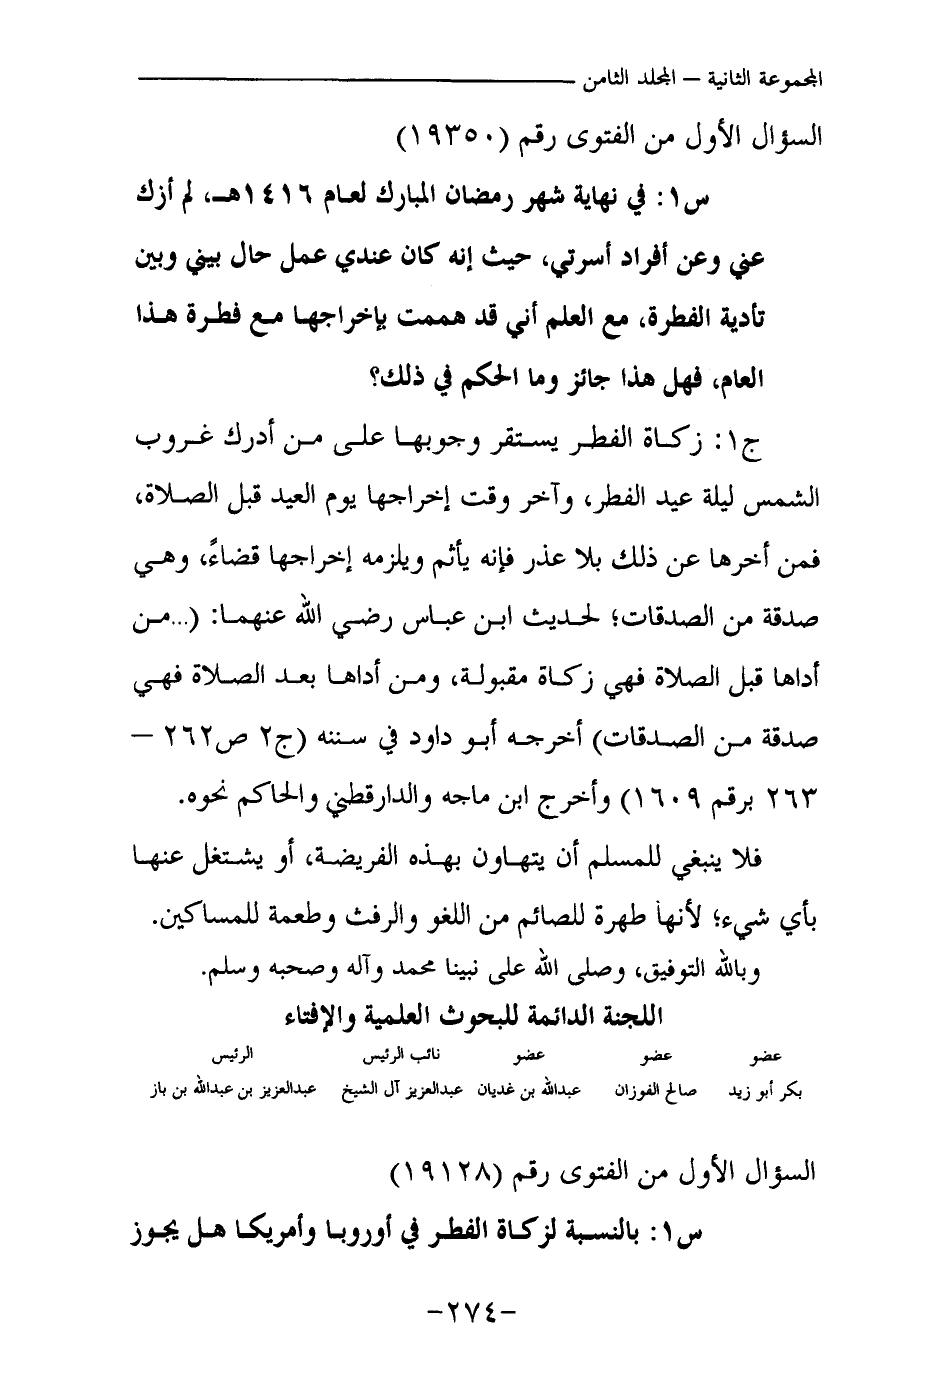 المجموعة الثانية – المجلد الثامن
السؤال الأول من الفتوى رقم (١٩٣٥٠)
س١: في نهاية شهر رمضان المبارك لعام ١٤١٦هـ، لم أزك
عني وعن أفراد أسرتي، حيث إنه كان عندي عمل حال بيني وبين
تأدية الفطرة، مع العلم أني قد هممت بإخراجها مع فطرة هذا
العام، فهل هذا جائز وما الحكم في ذلك؟
ج١: زكاة الفطر يستقر وجوبها على من أدرك غروب
الشمس ليلة عيد الفطر، وآخر وقت إخراجها يوم العيد قبل الصلاة،
فمن أخرها عن ذلك بلا عذر فإنه يأثم ويلزمه إخراجها قضاءً، وهي
صدقة من الصدقات؛ لحديث ابن عباس رضي الله عنهما: (...من
أداها قبل الصلاة فهي زكاة مقبولة، ومن أداها بعد الصلاة فهي
صدقة من الصدقات) أخرجه أبو داود في سننه (ج٢ ص٢٦٢ –
٢٦٣ برقم ١٦٠٩) وأخرج ابن ماجه والدارقطني والحاكم نحوه.
فلا ينبغي للمسلم أن يتهاون بهذه الفريضة، أو يشتغل عنها
بأي شيء؛ لأنها طهرة للصائم من اللغو والرفث وطعمة للمساكين.
وبالله التوفيق، وصلى الله على نبينا محمد وآله وصحبه وسلم.
اللجنة الدائمة للبحوث العلمية والإفتاء
عضو عضو عضو نائب الرئيس الرئيس
بكر أبو زيد صالح الفوزان عبدالله بن غديان عبدالعزيز آل الشيخ عبدالعزيز بن عبدالله بن باز
السؤال الأول من الفتوى رقم (١٩١٢٨)
س١: بالنسبة لزكاة الفطر في أوروبا وأمريكا هل يجوز
-٢٧٤-